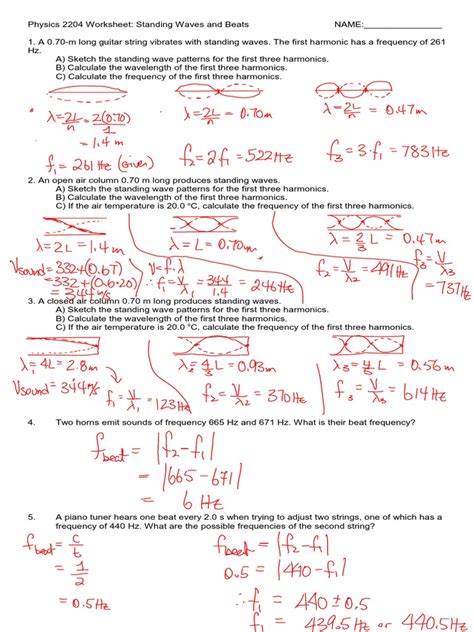 Physics 2204 Worksheet: Standing Waves and Beats NAME:
1. A 0.70-m long guitar string vibrates with standing waves. The first harmonic has a frequency of 261
Hz.
A) Sketch the standing wave patterns for the first three harmonics.
B) Calculate the wavelength of the first three harmonics.
C) Calculate the frequency of the first three harmonics.
λ=2L/n=2(0.70)/1
=1.4m
f₁=261Hz (given)
λ=2L/n=0.70m
f₂=2f₁=522Hz
λ=2L/n=0.47m
f₃=3·f₁=783Hz
2. An open air column 0.70 m long produces standing waves.
A) Sketch the standing wave patterns for the first three harmonics.
B) Calculate the wavelength of the first three harmonics.
C) If the air temperature is 20.0 °C, calculate the frequency of the first three harmonics.
λ=2L=1.4m
Vsound=332+(0.6T)
=332+(0.6·20)
=344m/s
V=f·λ
∴f₁=344/1.4=246Hz
λ=L=0.70m
f₂=V/λ₂=491Hz
λ=2/3 L=0.47m
f₃=V/λ₃
=737Hz
3. A closed air column 0.70 m long produces standing waves.
A) Sketch the standing wave patterns for the first three harmonics.
B) Calculate the wavelength of the first three harmonics.
C) If the air temperature is 20.0 °C, calculate the frequency of the first three harmonics.
λ₁=4L=2.8m
Vsound=344m/s
f₁=V/λ₁=123Hz
λ₂=4/3 L=0.93m
f₂=V/λ₂=370Hz
λ₃=4/5 L=0.56m
f₃=V/λ₃=614Hz
4. Two horns emit sounds of frequency 665 Hz and 671 Hz. What is their beat frequency?
fbeat=|f₂-f₁|
=|665-671|
=6 Hz
5. A piano tuner hears one beat every 2.0 s when trying to adjust two strings, one of which has a
frequency of 440 Hz. What are the possible frequencies of the second string?
fbeat=c/t
=1/2
=0.5Hz
fbeat=|f₂-f₁|
0.5=|440-f₁|
∴f₁=440±0.5
f₁=439.5Hz or 440.5Hz